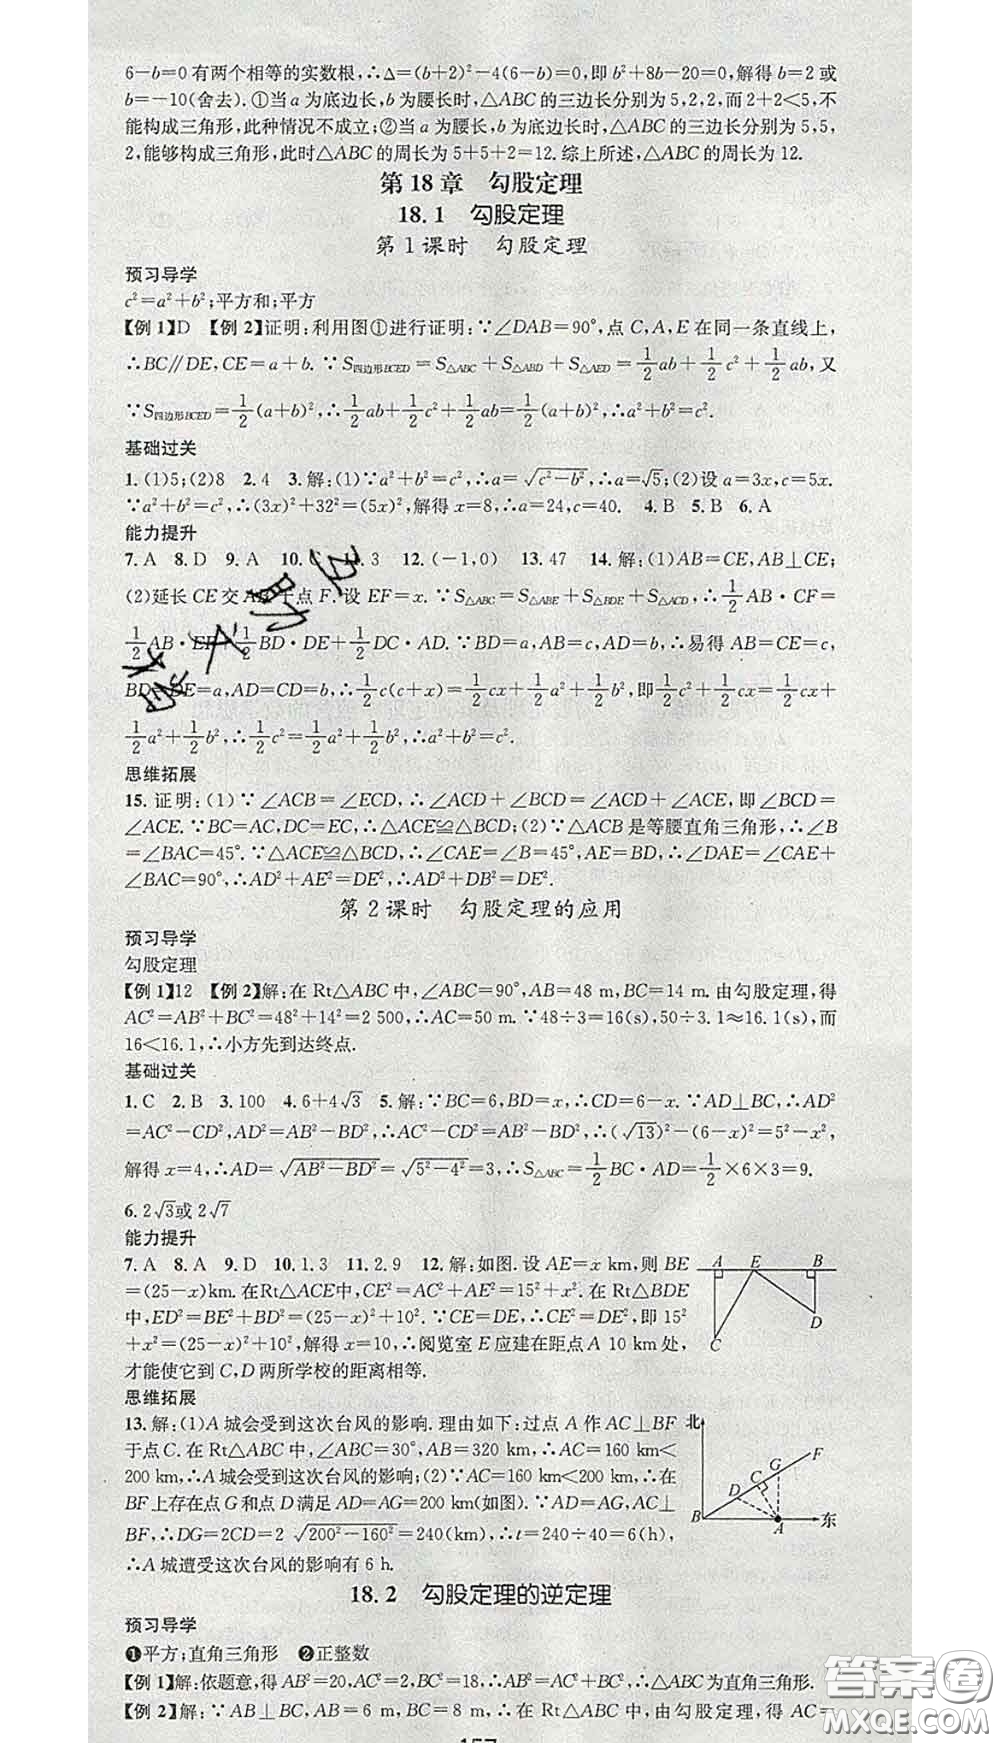 6－b＝0有两个相等的实数根,∴Δ＝(b＋2)²－4(6－b)＝0,即b²＋8b－20＝0,解得b＝2或
b＝－10(舍去).①当a为底边长,b为腰长时,△ABC的三边长分别为5,2,2,而2＋2＜5,不
能构成三角形,此种情况不成立;②当a为腰长,b为底边长时,△ABC的三边长分别为5,5,
2,能够构成三角形,此时△ABC的周长为5＋5＋2＝12.综上所述,△ABC的周长为12.
第18章 勾股定理
18.1 勾股定理
第1课时 勾股定理
预习导学
c²＝a²＋b²;平方和;平方
【例1】D 【例2】证明:利用图①进行证明:∵∠DAB＝90°,点C,A,E在同一条直线上,
∴BC∥DE,CE＝a＋b.∵S四边形BCED＝S△ABC＋S△ABD＋S△AED＝1/2ab＋1/2c²＋1/2ab,又
∵S四边形BCED＝1/2(a＋b)²,∴1/2ab＋1/2c²＋1/2ab＝1/2(a＋b)²,∴a²＋b²＝c².
基础过关
1.(1)5;(2)8 2.4 3.解:(1)∵a²＋b²＝c²,∴a＝√(c²－b²),∴a＝√5;(2)设a＝3x,c＝5x.
∵a²＋b²＝c²,∴(3x)²＋32²＝(5x)²,解得x＝8,∴a＝24,c＝40. 4.B 5.B 6.A
能力提升
7.A 8.D 9.A 10.C 11.3 12.(－1,0) 13.47 14.解:(1)AB＝CE,AB⊥CE;
(2)延长CE交AB于点F.设EF＝x.∵S△ABC＝S△ABE＋S△BDE＋S△ACD,∴1/2AB·CF＝
1/2AB·EF＋1/2BD·DE＋1/2DC·AD.∵BD＝a,AC＝b,AD＝b,∴易得AB＝CE＝c,
BD＝DE＝a,AD＝CD＝b,∴1/2c(c＋x)＝1/2cx＋1/2a²＋1/2b²,即1/2c²＋1/2cx＝1/2cx＋
1/2a²＋1/2b²,∴1/2c²＝1/2a²＋1/2b²,∴a²＋b²＝c².
思维拓展
15.证明:(1)∵∠ACB＝∠ECD,∴∠ACD＋∠BCD＝∠ACD＋∠ACE,即∠BCD＝
∠ACE.∵BC＝AC,DC＝EC,∴△ACE≌△BCD;(2)∵△ACB是等腰直角三角形,∴∠B
＝∠BAC＝45°.∵△ACE≌△BCD,∴∠CAE＝∠B＝45°,AE＝BD,∴∠DAE＝∠CAE＋
∠BAC＝90°,∴AD²＋AE²＝DE²,∴AD²＋DB²＝DE².
第2课时 勾股定理的应用
预习导学
勾股定理
【例1】12 【例2】解:在Rt△ABC中,∠ABC＝90°,AB＝48 m,BC＝14 m.由勾股定理,得
AC²＝AB²＋BC²＝48²＋14²＝2 500,∴AC＝50 m.∵48÷3＝16(s),50÷3.1≈16.1(s),而
16＜16.1,∴小方先到达终点.
基础过关
1.C 2.B 3.100 4.6＋4√3 5.解:∵BC＝6,BD＝x,∴CD＝6－x.∵AD⊥BC,∴AD²
＝AC²－CD²,AD²＝AB²－BD²,∴AC²－CD²＝AB²－BD²,∴(√13)²－(6－x)²＝5²－x²,
解得x＝4,∴AD＝√(AB²－BD²)＝√(5²－4²)＝3,∴S△ABC＝1/2BC·AD＝1/2×6×3＝9.
6.2√3或2√7
能力提升
7.A 8.A 9.D 10.1.3 11.2.9 12.解:如图.设AE＝x km,则BE
＝(25－x)km.在Rt△ACE中,CE²＝AC²＋AE²＝15²＋x².在Rt△BDE
中,ED²＝BE²＋BD²＝(25－x)²＋10².∵CE＝DE,∴CE²＝DE²,即15²
＋x²＝(25－x)²＋10²,解得x＝10,∴阅览室E应建在距点A 10 km处,
才能使它到C,D两所学校的距离相等.
A E B
D
C
思维拓展
13.解:(1)A城会受到这次台风的影响.理由如下:过点A作AC⊥BF
于点C.在Rt△ABC中,∠ABC＝30°,AB＝320 km,∴AC＝160 km＜
200 km,∴A城会受到这次台风的影响;(2)∵AC＝160 km＜200 km,∴在
BF上存在点G和点D满足AD＝AG＝200(km).∵AD＝AG,AC⊥
BF,∴DG＝2CD＝2√(200²－160²)＝240(km),∴t＝240÷40＝6(h),
∴A城遭受这次台风的影响有6 h.
北
F
G
C
D
B A 东
18.2 勾股定理的逆定理
预习导学
❶平方;直角三角形 ❷正整数
【例1】解:依题意,得AB²＝20,AC²＝2,BC²＝18,∴AB²＝AC²＋BC²,∴△ABC为直角三角形.
【例2】解:∵AB⊥BC,AB＝6 m,BC＝8 m,∴在Rt△ABC中,由勾股定理,得AC＝
157
答案圈
MXQE.COM